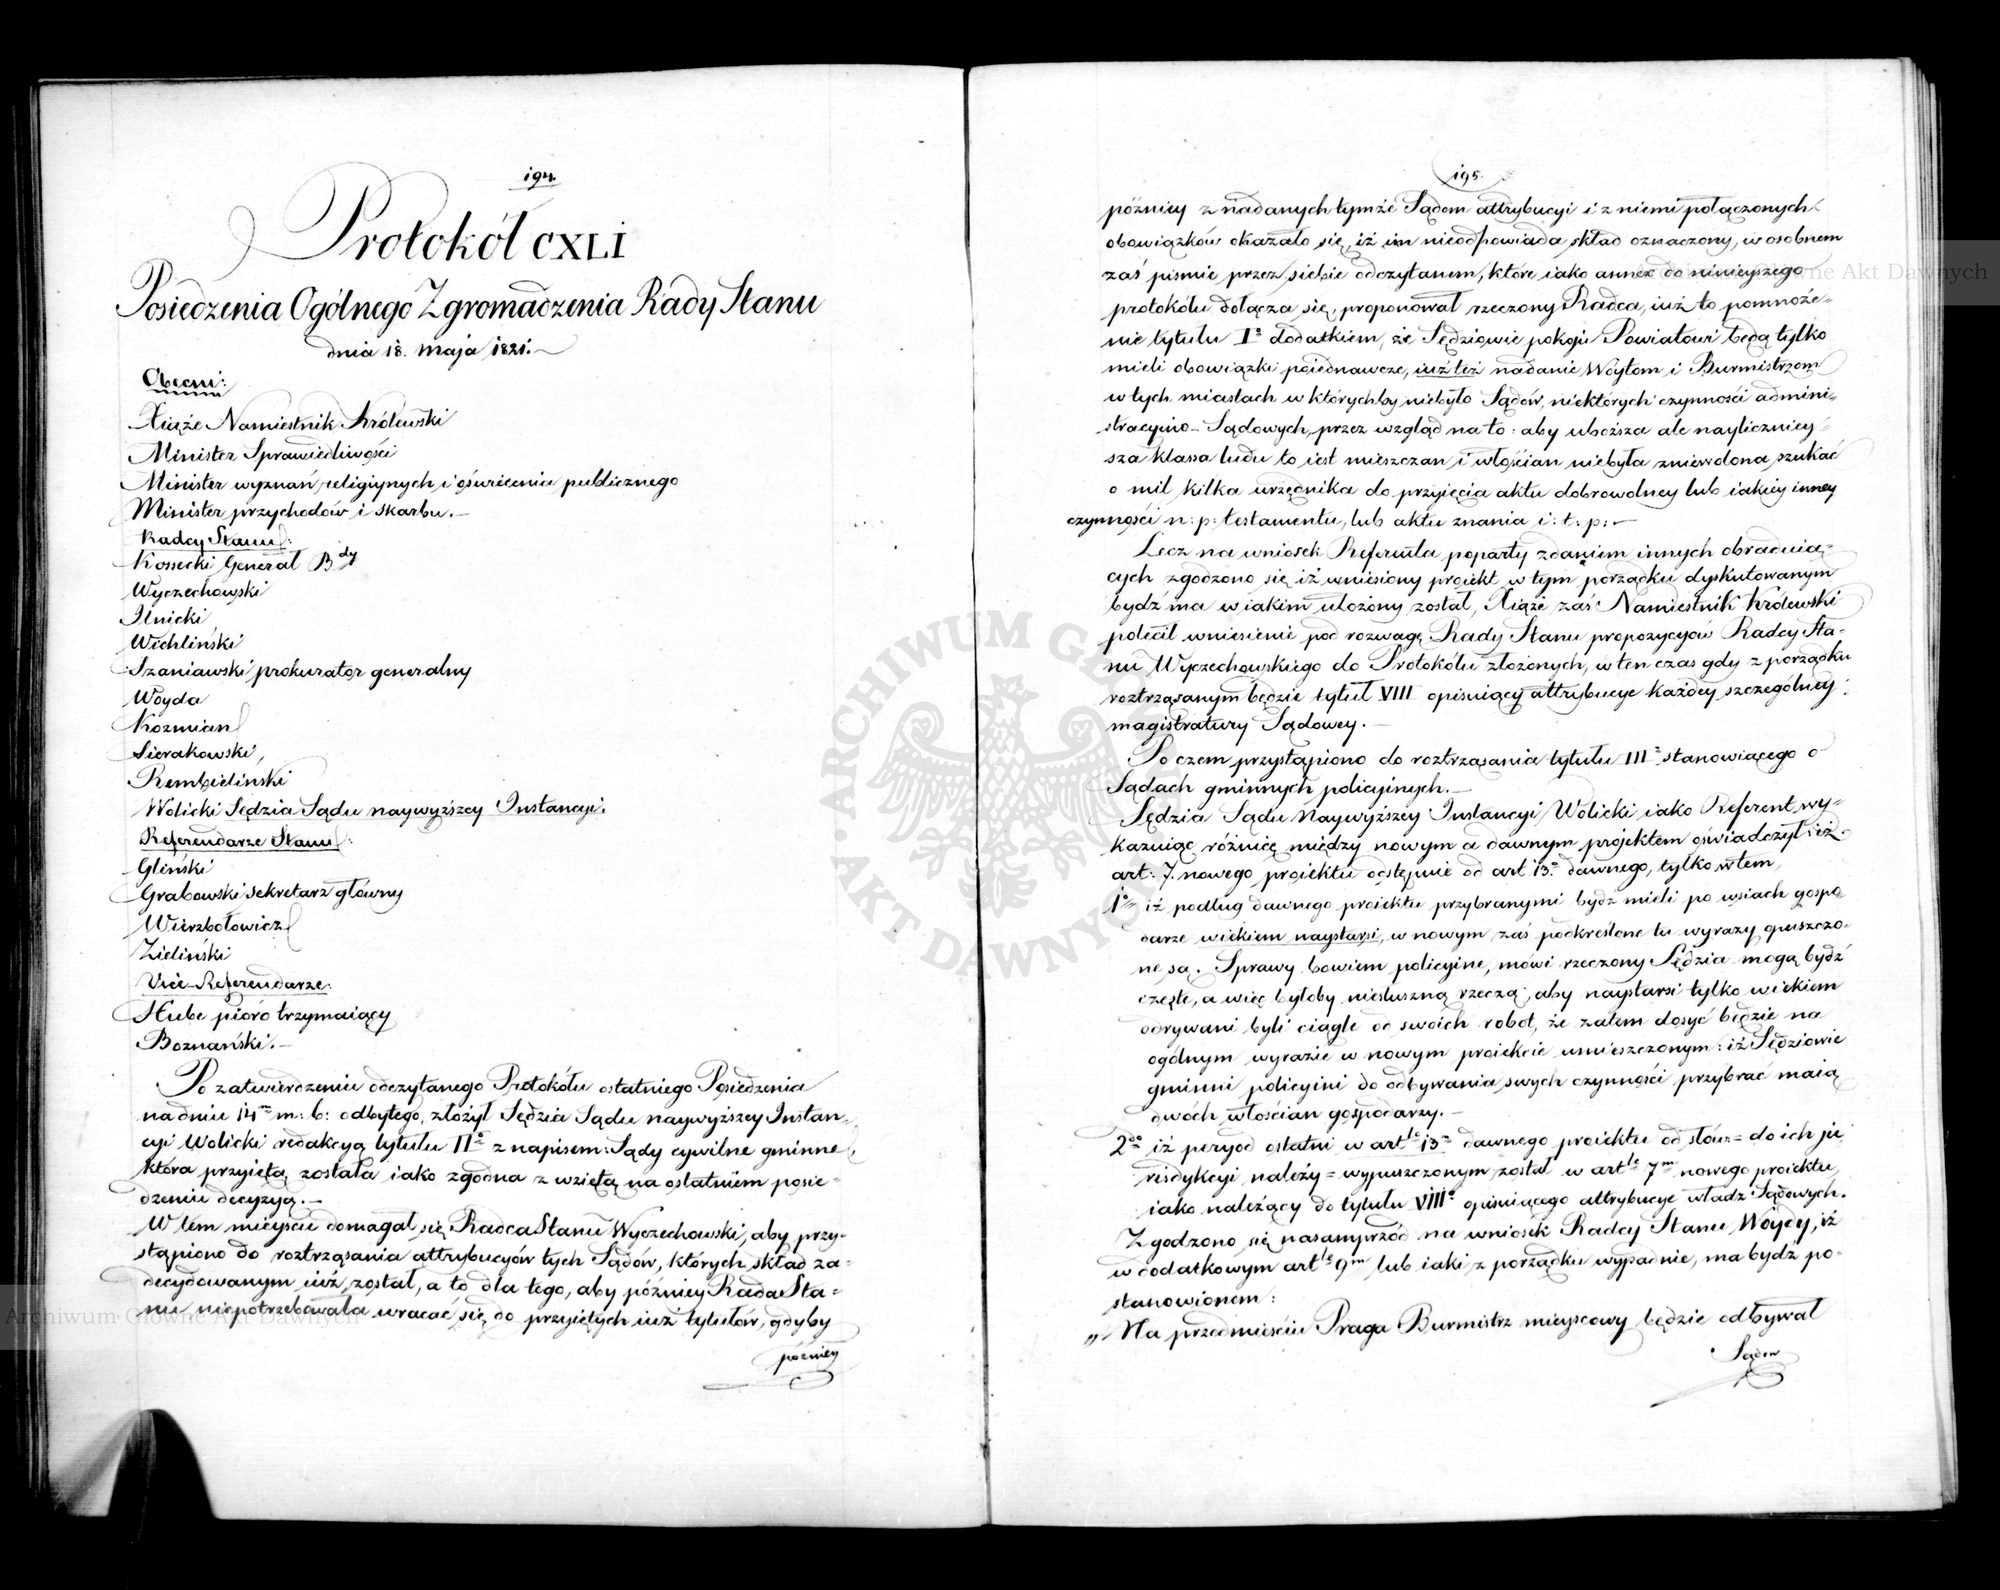 194.
Protokół CXLI
Posiedzenia Ogólnego Zgromadzenia Rady Stanu
dnia 18. Maja 1821.—
Obecni:
Xiąże Namiestnik Królewski
Minister Sprawiedliwości
Minister wyznań religiynych i oświecenia publicznego
Minister przychodów i skarbu.—
Radcy Stanu:
Kossecki Generał Bdy
Wyczechowski
Ilnicki
Wichliński
Szaniawski prokurator generalny
Woyda
Kozmian
Sierakowski,
Rembieliński
Wolicki Sędzia Sądu naywyższey Instancyi.
Referendarze Stanu:
Gliński
Grabowski sekretarz główny
Wierzbołowicz
Zieliński
Vice-Referendarze:
Hube pióro trzymaiący
Boznański.—
Po zatwierdzeniu odczytanego Protokółu ostatniego Posiedzenia
na dniu 14m m: b: odbytego, złożył Sędzia Sądu naywyższey Instan-
cyi Wolicki redakcyą tytułu IIo z napisem: Sądy cywilne gminne,
która przyiętą została iako zgodna z wziętą na ostatniem posie-
dzeniu decyzyą.—
W tem mieyscu domagał się Radca Stanu Wyczechowski, aby przy-
stąpiono do roztrząsania attrybucyów tych Sądów, których skład za-
decydowanym iuż został, a to dla tego, aby późniey Rada Sta-
nu niepotrzebowała wracać się do przyiętych iuż tytułów, gdyby
późniey
195.
późniey z nadanych tymże Sądom attrybucyi i z niemi połączonych
obowiązków okazało się, iż im nieodpowiada skład oznaczony, w osobnem
zaś pismie przez siebie odczytanem, które iako annex do ninieyszego
protokółu dołącza się, proponował rzeczony Radca, iuż to pomnoże-
nie tytułu Io dodatkiem, że Sędziowie pokoju Powiatowi będą tylko
mieli obowiązki poiednawcze, iuż też nadanie Woytom i Burmistrzom
w tych miastach w którychby niebyło Sądów, niektórych czynności admini-
stracyino-Sądowych, przez wzgląd na to: aby uboższa ale nayliczniey-
sza klassa ludu to iest mieszczan i włościan niebyła zniewolona szukać
o mil kilka urzędnika do przyięcia aktu dobrowolney lub iakiey inney
czynności n: p: testamentu, lub aktu znania i: t: p:—
Lecz na wniosek Referenta poparty zdaniem innych obraduią-
cych zgodzono się iż wniesiony proiekt w tym porządku dyskutowanym
bydź ma w iakim ułożony został, Xiąże zaś Namiestnik Królewski
polecił wniesienie pod rozwagę Rady Stanu propozycyów Radcy Sta-
nu Wyczechowskiego do Protokółu złożonych, w ten czas gdy z porządku
roztrząsanym będzie tytuł VIII opisuiący attrybucye każdey szczególney
magistratury Sądowey.—
Po czem przystąpiono do roztrząsania tytułu III stanowiącego o
Sądach gminnych policyjnych.—
Sędzia Sądu Naywyższey Instancyi Wolicki iako Referent wy-
kazuiąc różnicę między nowym a dawnym proiektem oświadczył: iż
art: 7. nowego proiektu odstępuie od art 13o dawnego, tylko w tem,
1o iż podług dawnego proiektu przybranymi bydź mieli po wsiach gospo-
darze wiekiem naystarsi, w nowym zaś podkreślone tu wyrazy opuszczo-
ne są. Sprawy bowiem policyine, mówi rzeczony Sędzia mogą bydź
częste, a więc byłoby niesłuszną rzeczą, aby naystarsi tylko wiekiem
odrywani byli ciągle od swoich robot, że zatem dosyć będzie na
ogólnym wyrazie w nowym proiekcie umieszczonym: iż Sędziowie
gminni policyini do odbywania swych czynności przybrać maią
dwóch włościan gospodarzy.—
2do iż peryod ostatni w artle 13m dawnego proiektu od słów= do ich ju
risdykcyi należy= wypuszczonym został w artle 7m nowego proiektu,
iako należący do tytułu VIIIo opisuiącego attrybucye władz Sądowych.
Zgodzono się nasamprzód na wniosek Radcy Stanu Woydy, iż
w dodatkowym artle 9m lub iaki z porządku wypadnie, ma bydz po-
stanowionem:
„ Na przedmieściu Praga Burmistrz mieyscowy będzie odbywał
Sądow
ARCHIWUM GŁÓWNE AKT DAWNYCH
Archiwum Główne Akt Dawnych
Archiwum Główne Akt Dawnych